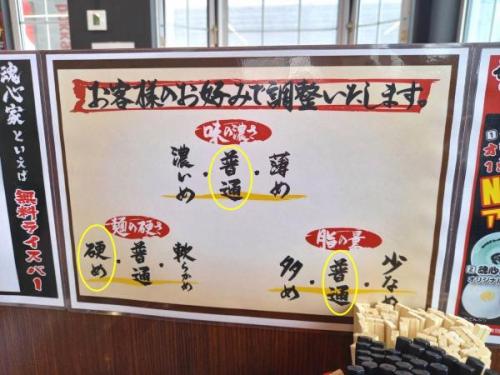 お客様のお好みで調整いたします。
味の濃さ
濃いめ・普通・薄め
麺の硬さ
硬め・普通・軟らかめ
脂の量
多め・普通・少なめ
魂心家といえば
無料ライスバー